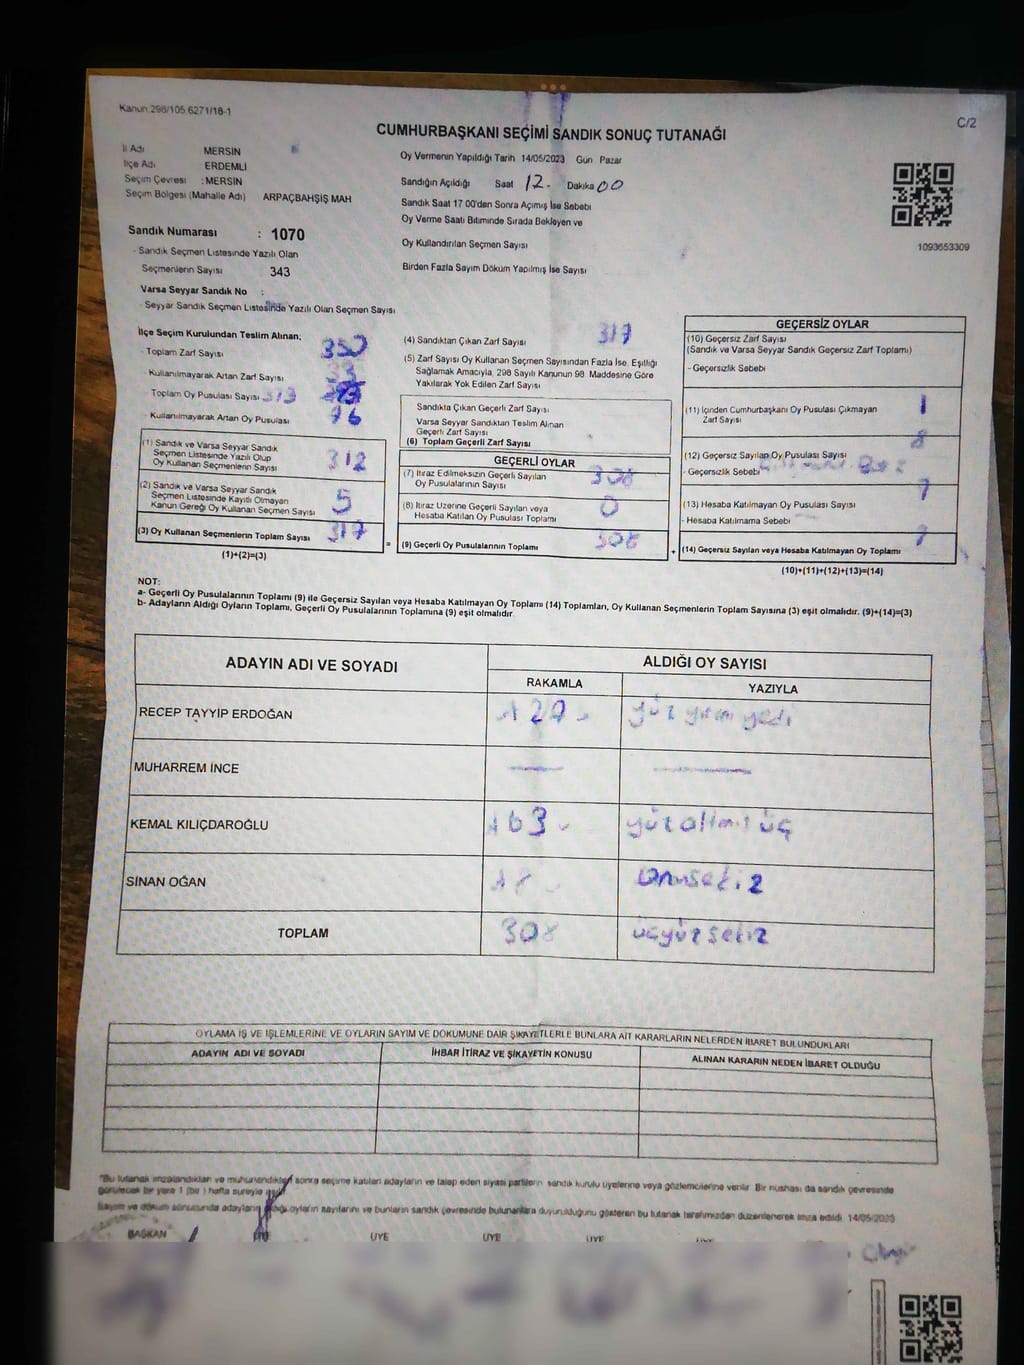 Kanun.298/105.6271/18-1
C/2
CUMHURBAŞKANI SEÇİMİ SANDIK SONUÇ TUTANAĞI
İl Adı MERSİN
İlçe Adı ERDEMLİ
Seçim Çevresi :MERSİN
Seçim Bölgesi (Mahalle Adı) ARPAÇBAHŞİŞ MAH
Oy Vermenin Yapıldığı Tarih 14/05/2023 Gün Pazar
Sandığın Açıldığı Saat 12. Dakika 00
Sandık Saat 17 00'den Sonra Açımış İse Sebebi
Oy Verme Saati Bitiminde Sırada Bekleyen ve
Oy Kullandırılan Seçmen Sayısı
Birden Fazla Sayım Döküm Yapılmış İse Sayısı
1093653309
Sandık Numarası : 1070
- Sandık Seçmen Listesinde Yazılı Olan
Seçmenlerin Sayısı 343
Varsa Seyyar Sandık No :
Seyyar Sandık Seçmen Listesinde Yazılı Olan Seçmen Sayısı
İlçe Seçim Kurulundan Teslim Alınan:
- Toplam Zarf Sayısı 350
- Kullanılmayarak Artan Zarf Sayısı 33
Toplam Oy Pusulası Sayısı
- Kullanılmayarak Artan Oy Pusulası 76
(1) Sandık ve Varsa Seyyar Sandık
Seçmen Listesinde Yazılı Olup
Oy Kullanan Seçmenlerin Sayısı 312
(2) Sandık ve Varsa Seyyar Sandık
Seçmen Listesinde Kayıtlı Olmayan
Kanun Gereği Oy Kullanan Seçmen Sayısı 5
(3) Oy Kullanan Seçmenlerin Toplam Sayısı 317 =
(1)+(2)=(3)
(4) Sandıktan Çıkan Zarf Sayısı 317
(5) Zarf Sayısı Oy Kullanan Seçmen Sayısından Fazla İse, Eşitliği
Sağlamak Amacıyla, 298 Sayılı Kanunun 98. Maddesine Göre
Yakılarak Yok Edilen Zarf Sayısı
Sandıkta Çıkan Geçerli Zarf Sayısı
Varsa Seyyar Sandıktan Teslim Alınan
Geçerli Zarf Sayısı
(6) Toplam Geçerli Zarf Sayısı
GEÇERLİ OYLAR
(7) İtiraz Edilmeksizin Geçerli Sayılan
Oy Pusulalarının Sayısı 308
(8) İtiraz Üzerine Geçerli Sayılan veya
Hesaba Katılan Oy Pusulası Toplamı 0
(9) Geçerli Oy Pusulalarının Toplamı 308 +
GEÇERSİZ OYLAR
(10) Geçersiz Zarf Sayısı
(Sandık ve Varsa Seyyar Sandık Geçersiz Zarf Toplamı)
- Geçersizlik Sebebi
(11) İçinden Cumhurbaşkanı Oy Pusulası Çıkmayan
Zarf Sayısı 1
(12) Geçersiz Sayılan Oy Pusulası Sayısı 8
- Geçersizlik Sebebi
(13) Hesaba Katılmayan Oy Pusulası Sayısı
- Hesaba Katılmama Sebebi
(14) Geçersiz Sayılan veya Hesaba Katılmayan Oy Toplamı
(10)+(11)+(12)+(13)=(14)
NOT:
a- Geçerli Oy Pusulalarının Toplamı (9) ile Geçersiz Sayılan veya Hesaba Katılmayan Oy Toplamı (14) Toplamları, Oy Kullanan Seçmenlerin Toplam Sayısına (3) eşit olmalıdır. (9)+(14)=(3)
b- Adayların Aldığı Oyların Toplamı, Geçerli Oy Pusulalarının Toplamına (9) eşit olmalıdır.
ADAYIN ADI VE SOYADI ALDIĞI OY SAYISI
RAKAMLA YAZIYLA
RECEP TAYYİP ERDOĞAN 127 yüz yirmi yedi
MUHARREM İNCE
KEMAL KILIÇDAROĞLU 163 yüz altmış üç
SİNAN OĞAN 18 onsekiz
TOPLAM 308 üçyüz sekiz
OYLAMA İŞ VE İŞLEMLERİNE VE OYLARIN SAYIM VE DÖKÜMÜNE DAİR ŞİKAYETLERLE BUNLARA AİT KARARLARIN NELERDEN İBARET BULUNDUKLARI
ADAYIN ADI VE SOYADI İHBAR İTİRAZ VE ŞİKAYETİN KONUSU ALINAN KARARIN NEDEN İBARET OLDUĞU
"Bu tutanak imzalandıktan ve mühürlendikten sonra seçime katılan adayların ve talep eden siyasi partilerin sandık kurulu üyelerine veya gözlemcilerine verilir. Bir nüshası da sandık çevresinde
görülecek bir yere 1 (bir) hafta süreyle
Sayım ve döküm sonucunda adayların aldığı oyların sayılarını ve bunların sandık çevresinde bulunanlara duyurulduğunu gösteren bu tutanak tarafımızdan düzenlenerek imza edildi. 14/05/2023
BAŞKAN ÜYE ÜYE ÜYE ÜYE